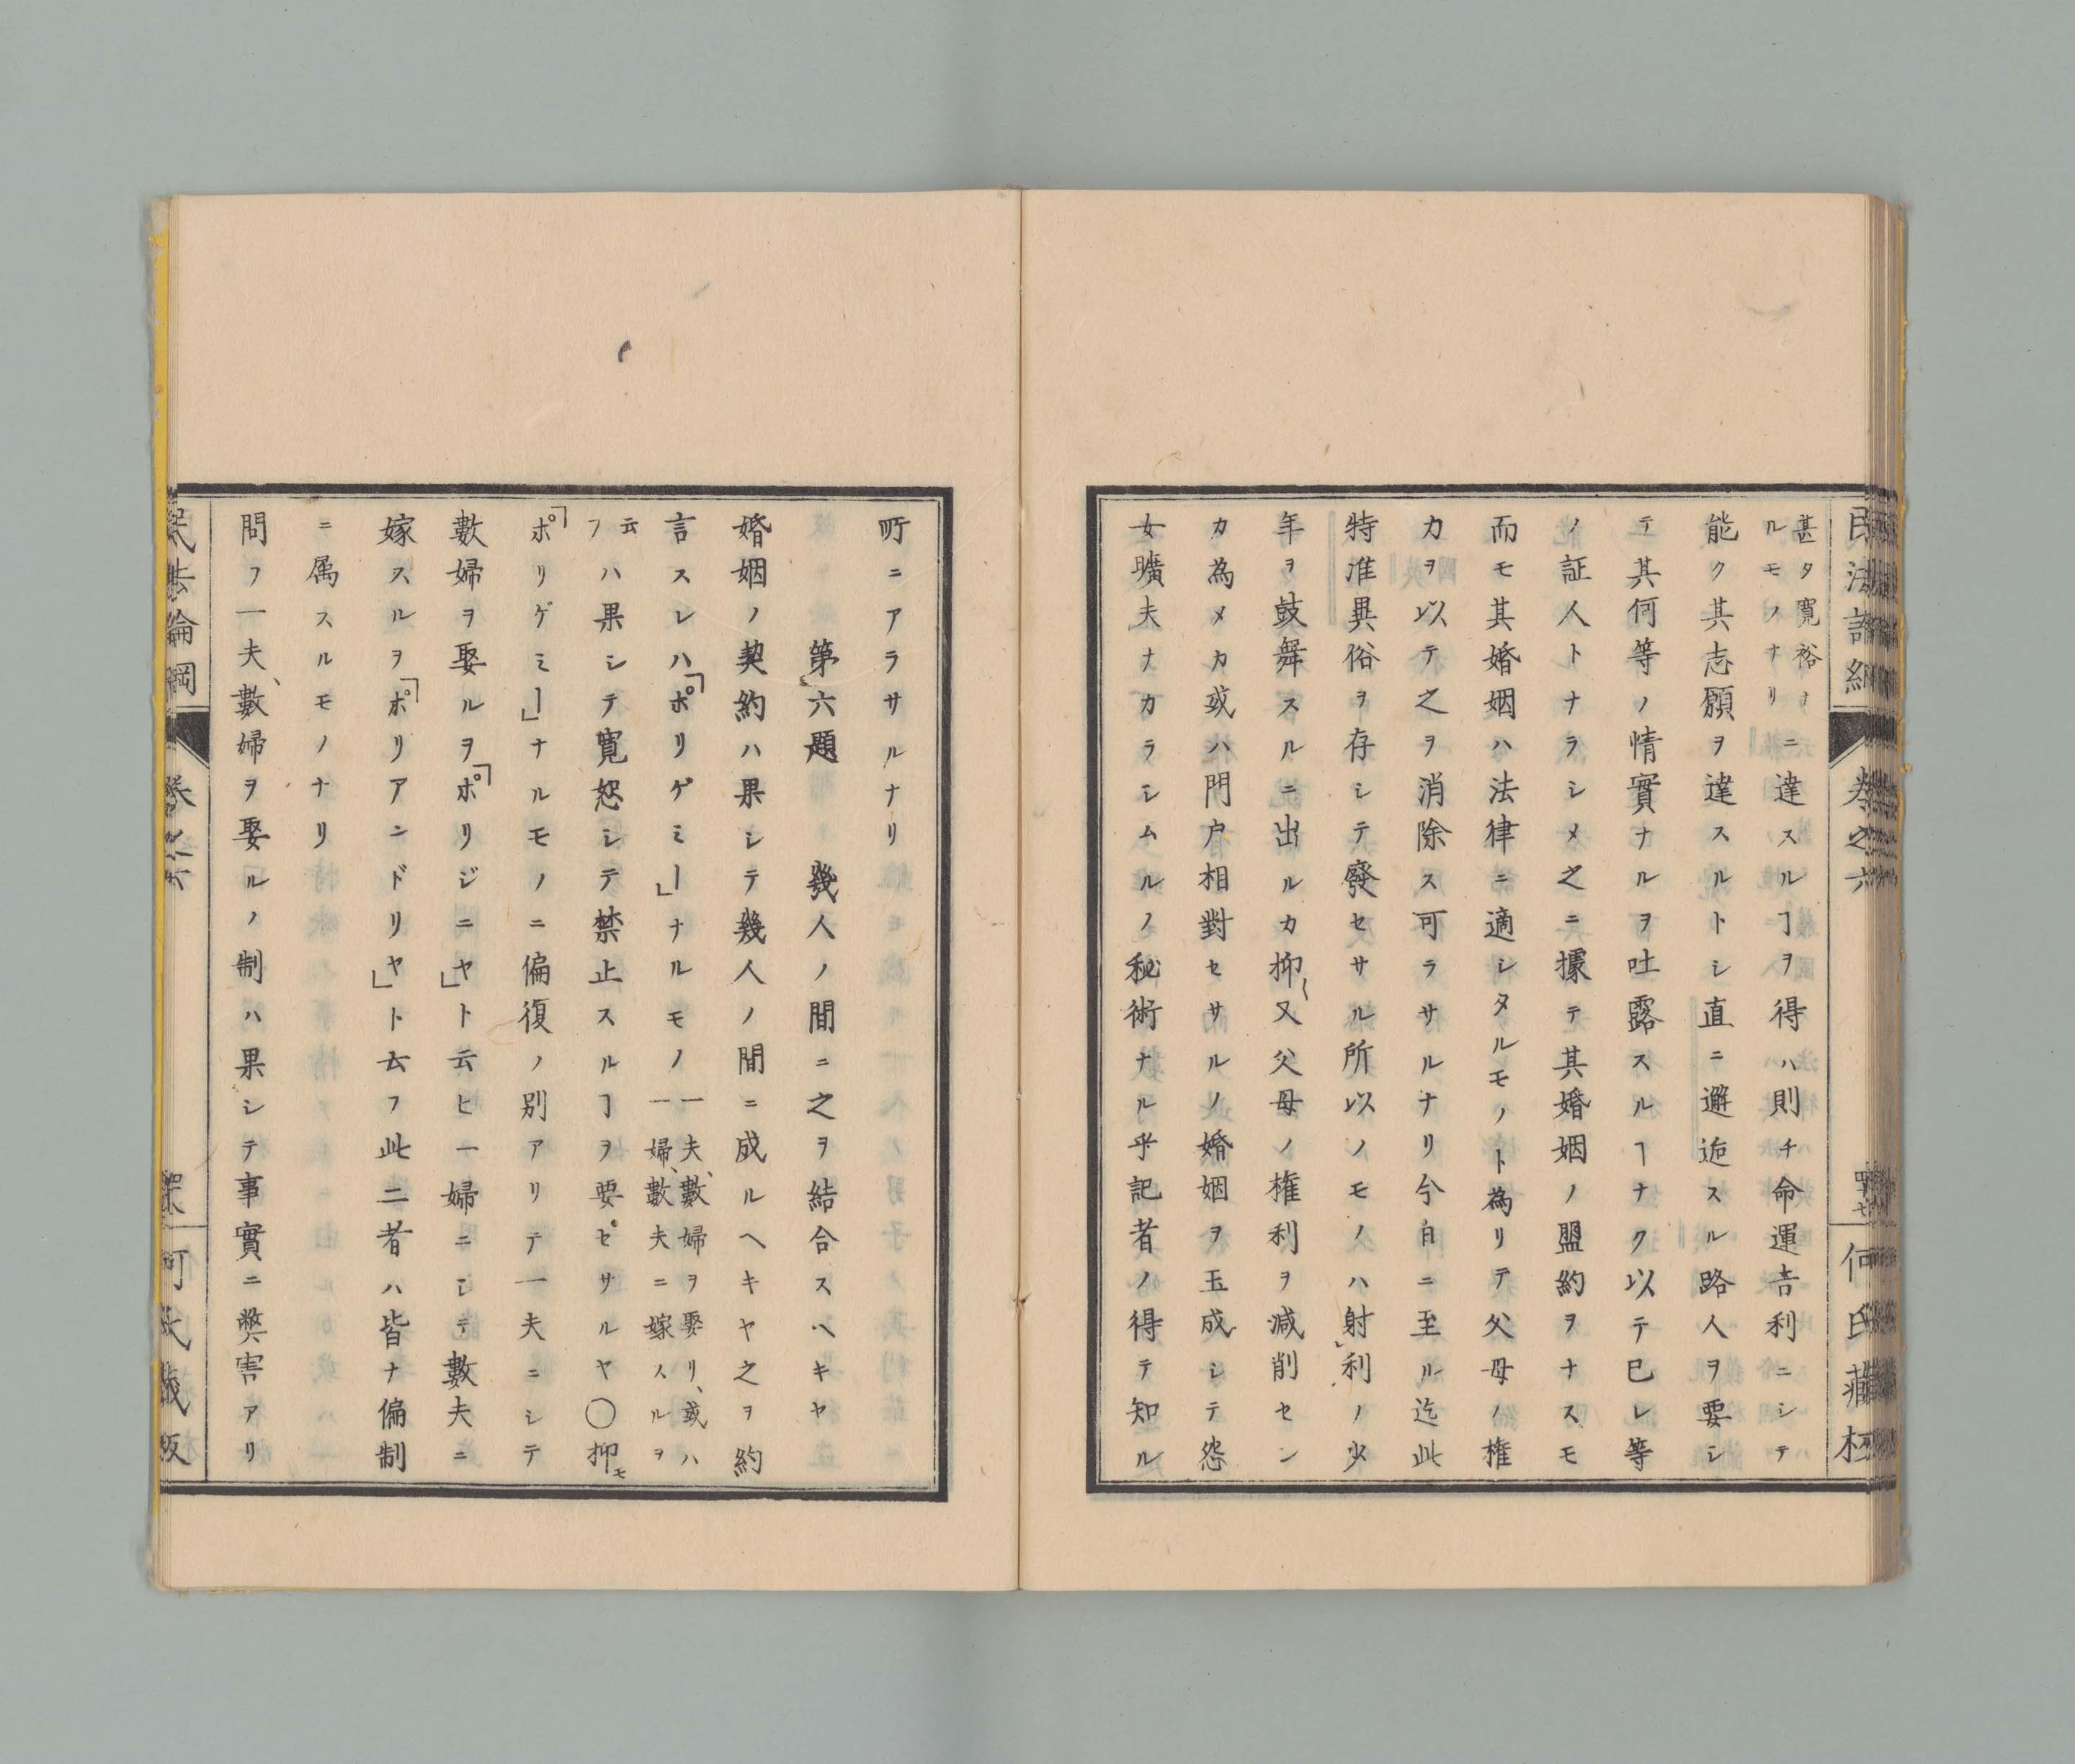 甚タ寛裕ナ
ルモノナリ
ニ達スルヿヲ得ハ則チ命運吉利ニシテ
能ク其志願ヲ達スルトシ直ニ邂逅スル路人ヲ要シ
テ其何等ノ情實ナルヲ吐露スルヿナク以テ已レ等
ノ証人トナラシメ之ニ據テ其婚姻ノ盟約ヲナスモ
而モ其婚姻ハ法律ニ適シタルモノト為リテ父母ノ権
カヲ以テ之ヲ消除ス可ラサルナリ今日ニ至ル迄此
特准異俗ヲ存シテ廢セサル所以ノモノハ射利ノ少
年ヲ鼓舞スルニ出ルカ抑又父母ノ権利ヲ減削セン
カ為メカ或ハ門户相對セサルノ婚姻ヲ玉成シテ怨
女曠夫ナカラシムルノ秘術ナル乎記者ノ得テ知ル
民法論綱 卷之六 四十七 何氏藏板
所ニアラサルナリ
第六題 幾人ノ間ニ之ヲ結合スヘキヤ
婚姻ノ契約ハ果シテ幾人ノ間ニ成ルヘキヤ之ヲ約
言スレハ「ポリゲミー」ナルモノ
一夫、數婦ヲ娶リ、或ハ
一婦、數夫ニ嫁スルヲ
云
フ
ハ果シテ寛恕シテ禁止スルヿヲ要セサルヤ〇抑モ
「ポリゲミー」ナルモノニ偏復ノ別アリテ一夫ニシテ
數婦ヲ娶ルヲ「ポリジニヤ」ト云ヒ一婦ニシテ數夫ニ
嫁スルヲ「ポリアンドリヤ」ト云フ此二者ハ皆ナ偏制
ニ属スルモノナリ
問フ一夫、數婦ヲ娶ルノ制ハ果シテ事實ニ弊害アリ
民法論綱 卷之六 何氏藏板